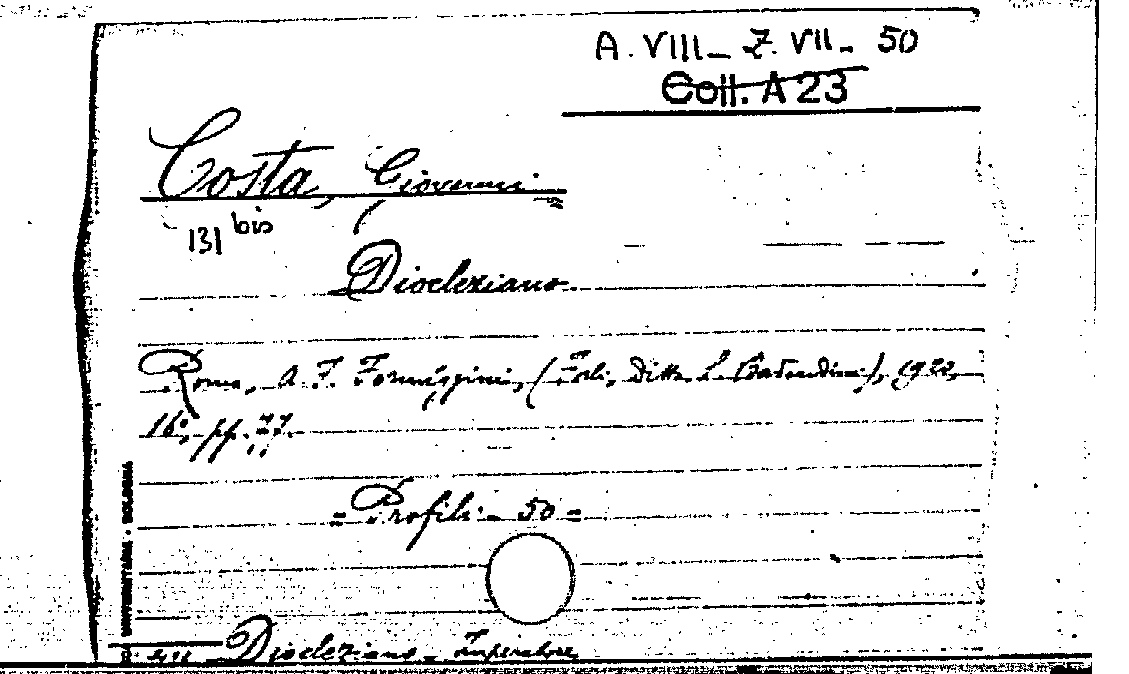 A. VIII - Z. VII - 50
Coll. A 23
Costa, Giovanni
131 bis
Diocleziano.
Roma, A. F. Formiggini, (Forlì, Ditta L. Bordandini), 1920,
16°, pp. 77.
= Profili - 50 =
UNIVERSITARIA - BOLOGNA
Diocleziano - Imperatore